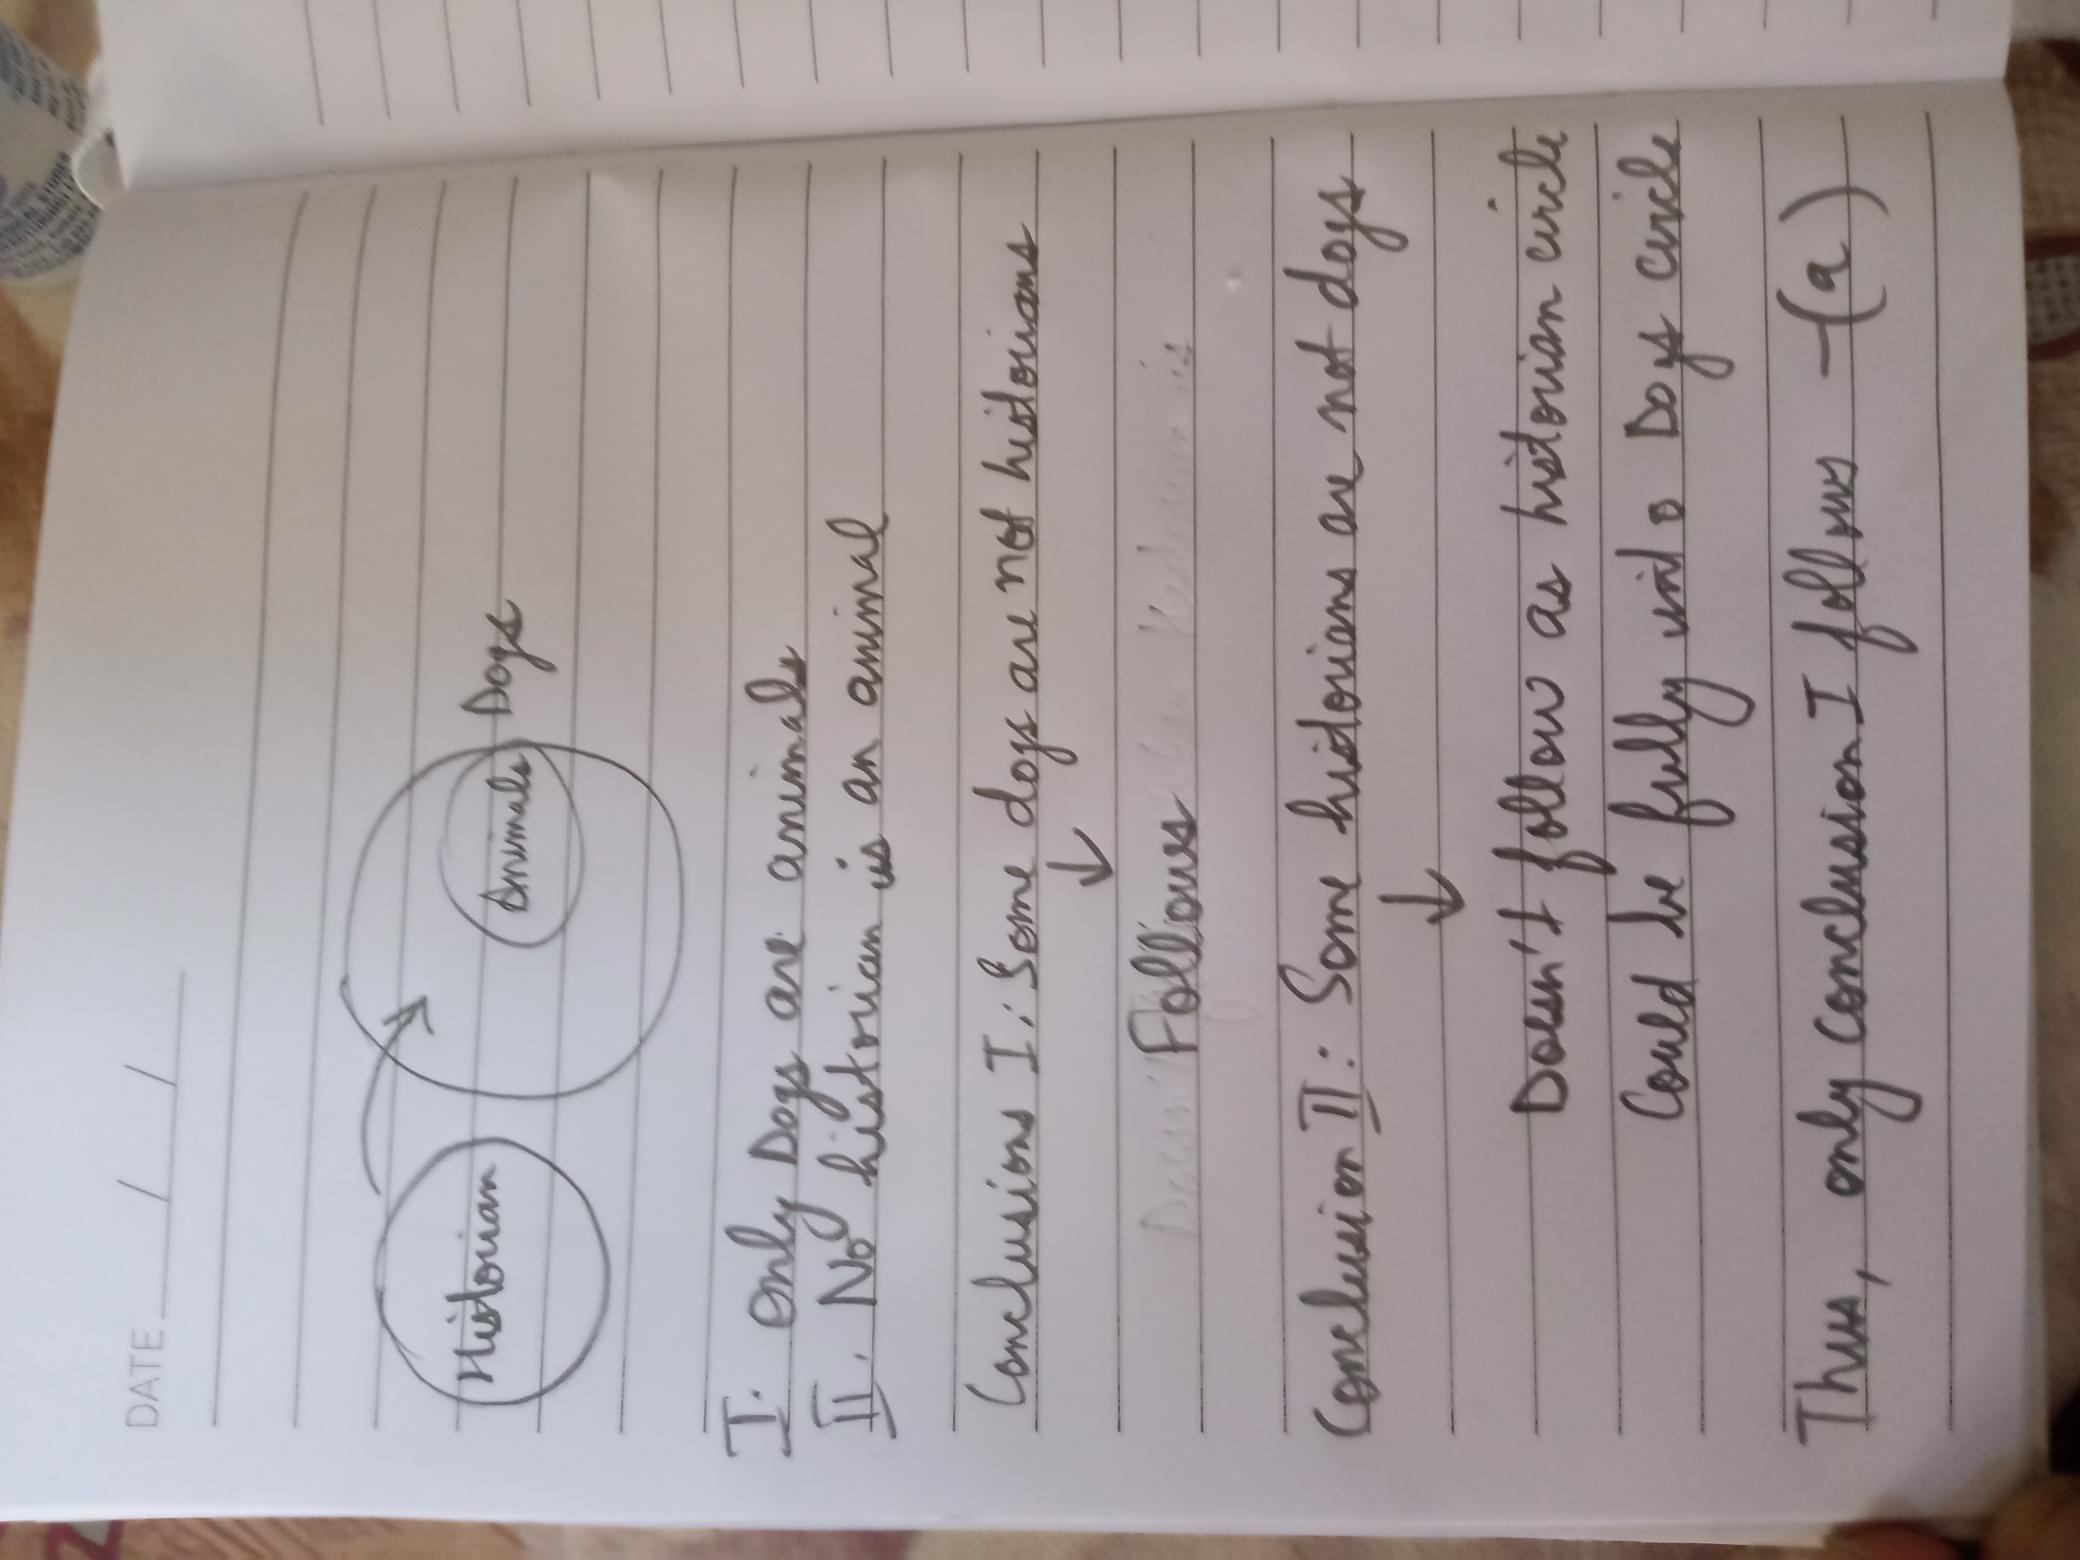 DATE / /
Historian
Animals
Dogs
I. Only Dogs are animals
II. No historian is an animal
Conclusions I: Some dogs are not historians
↓
Follows
Conclusion II: Some historians are not dogs
↓
Doesn't follow as historian circle
Could be fully Dogs circle
Thus, only conclusion I follows -(a)